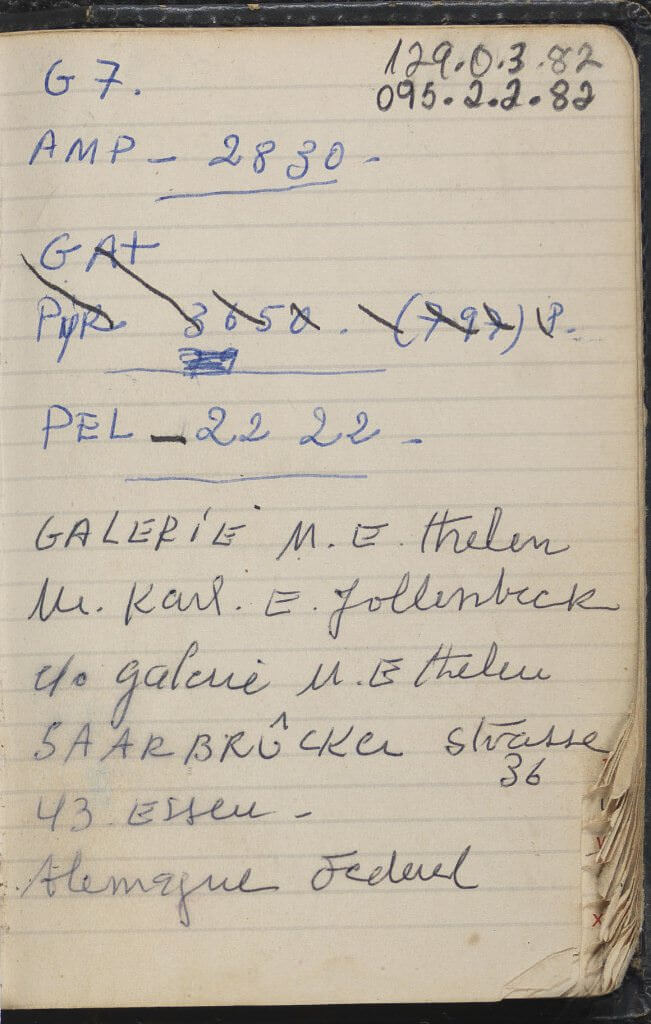 129.0.3.82
095.2.2.82
G 7.
AMP - 2830 -
GAT
3650. (797) P.
PEL - 22 22 -
GALERIE M. E. thelen
Mr. Karl. E. Jollenbeck
c/o galerie M. E thelen
SAARBRÛCKer strasse
36
43. Essen -
Alemagne Federal